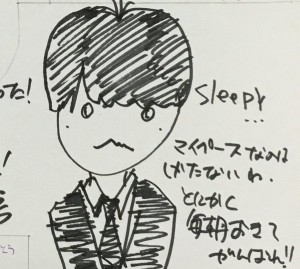 た!
Sleepy
...
マイペースなのは
しかたないわ.
とにかく
毎朝おきて
がんばれ!!
!